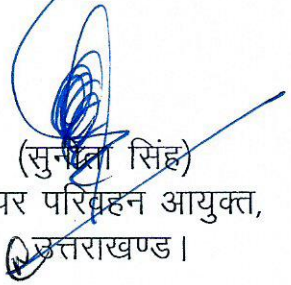 (सुनीता सिंह)
पर परिवहन आयुक्त,
उत्तराखण्ड।